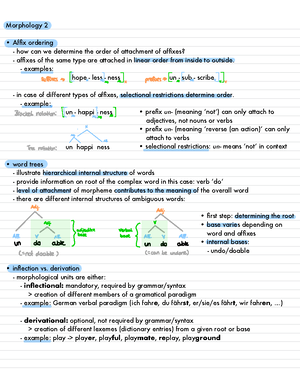 Morphology 2
• Affix ordering
- how can we determine the order of attachment of affixes?
- affixes of the same type are attached in linear order from inside to outside:
- examples:
suffixes → [hope - less - ness] prefixes → [un - sub - scribe]
- in case of different types of affixes, selectional restrictions determine order.
- example:
Bracket notation: [un - happi - ness]
Tree notation: un happi ness
• prefix un- (meaning 'not') can only attach to
adjectives, not nouns or verbs
• prefix un- (meaning 'reverse (an action)' can only
attach to verbs
• selectional restrictions: un- means 'not' in context
• word trees
- illustrate hierarchical internal structure of words
- provide information on root of the complex word in this case: verb 'do'
- level of attachment of morphemes contributes to the meaning of the overall word
- there are different internal structures of ambiguous words:
Adj Adj
Adj V
Aff V Aff Aff V Aff
un do able un do able
adjective base
verbal base
(= not doable) (= can be undone)
• first step: determining the root
• base varies depending on
word and affixes
• internal bases:
- undo/doable
• inflection vs. derivation
- morphological units are either:
- inflectional: mandatory, required by grammar/syntax
> creation of different members of a gramatical paradigm
- example: German verbal paradigm (ich fahre, du fährst, er/sie/es fährt, wir fahren, ...)
- derivational: optional, not required by grammar/syntax
> creation of different lexemes (dictionary entries) from a given root or base
- example: play -> player, playful, playmate, replay, playground